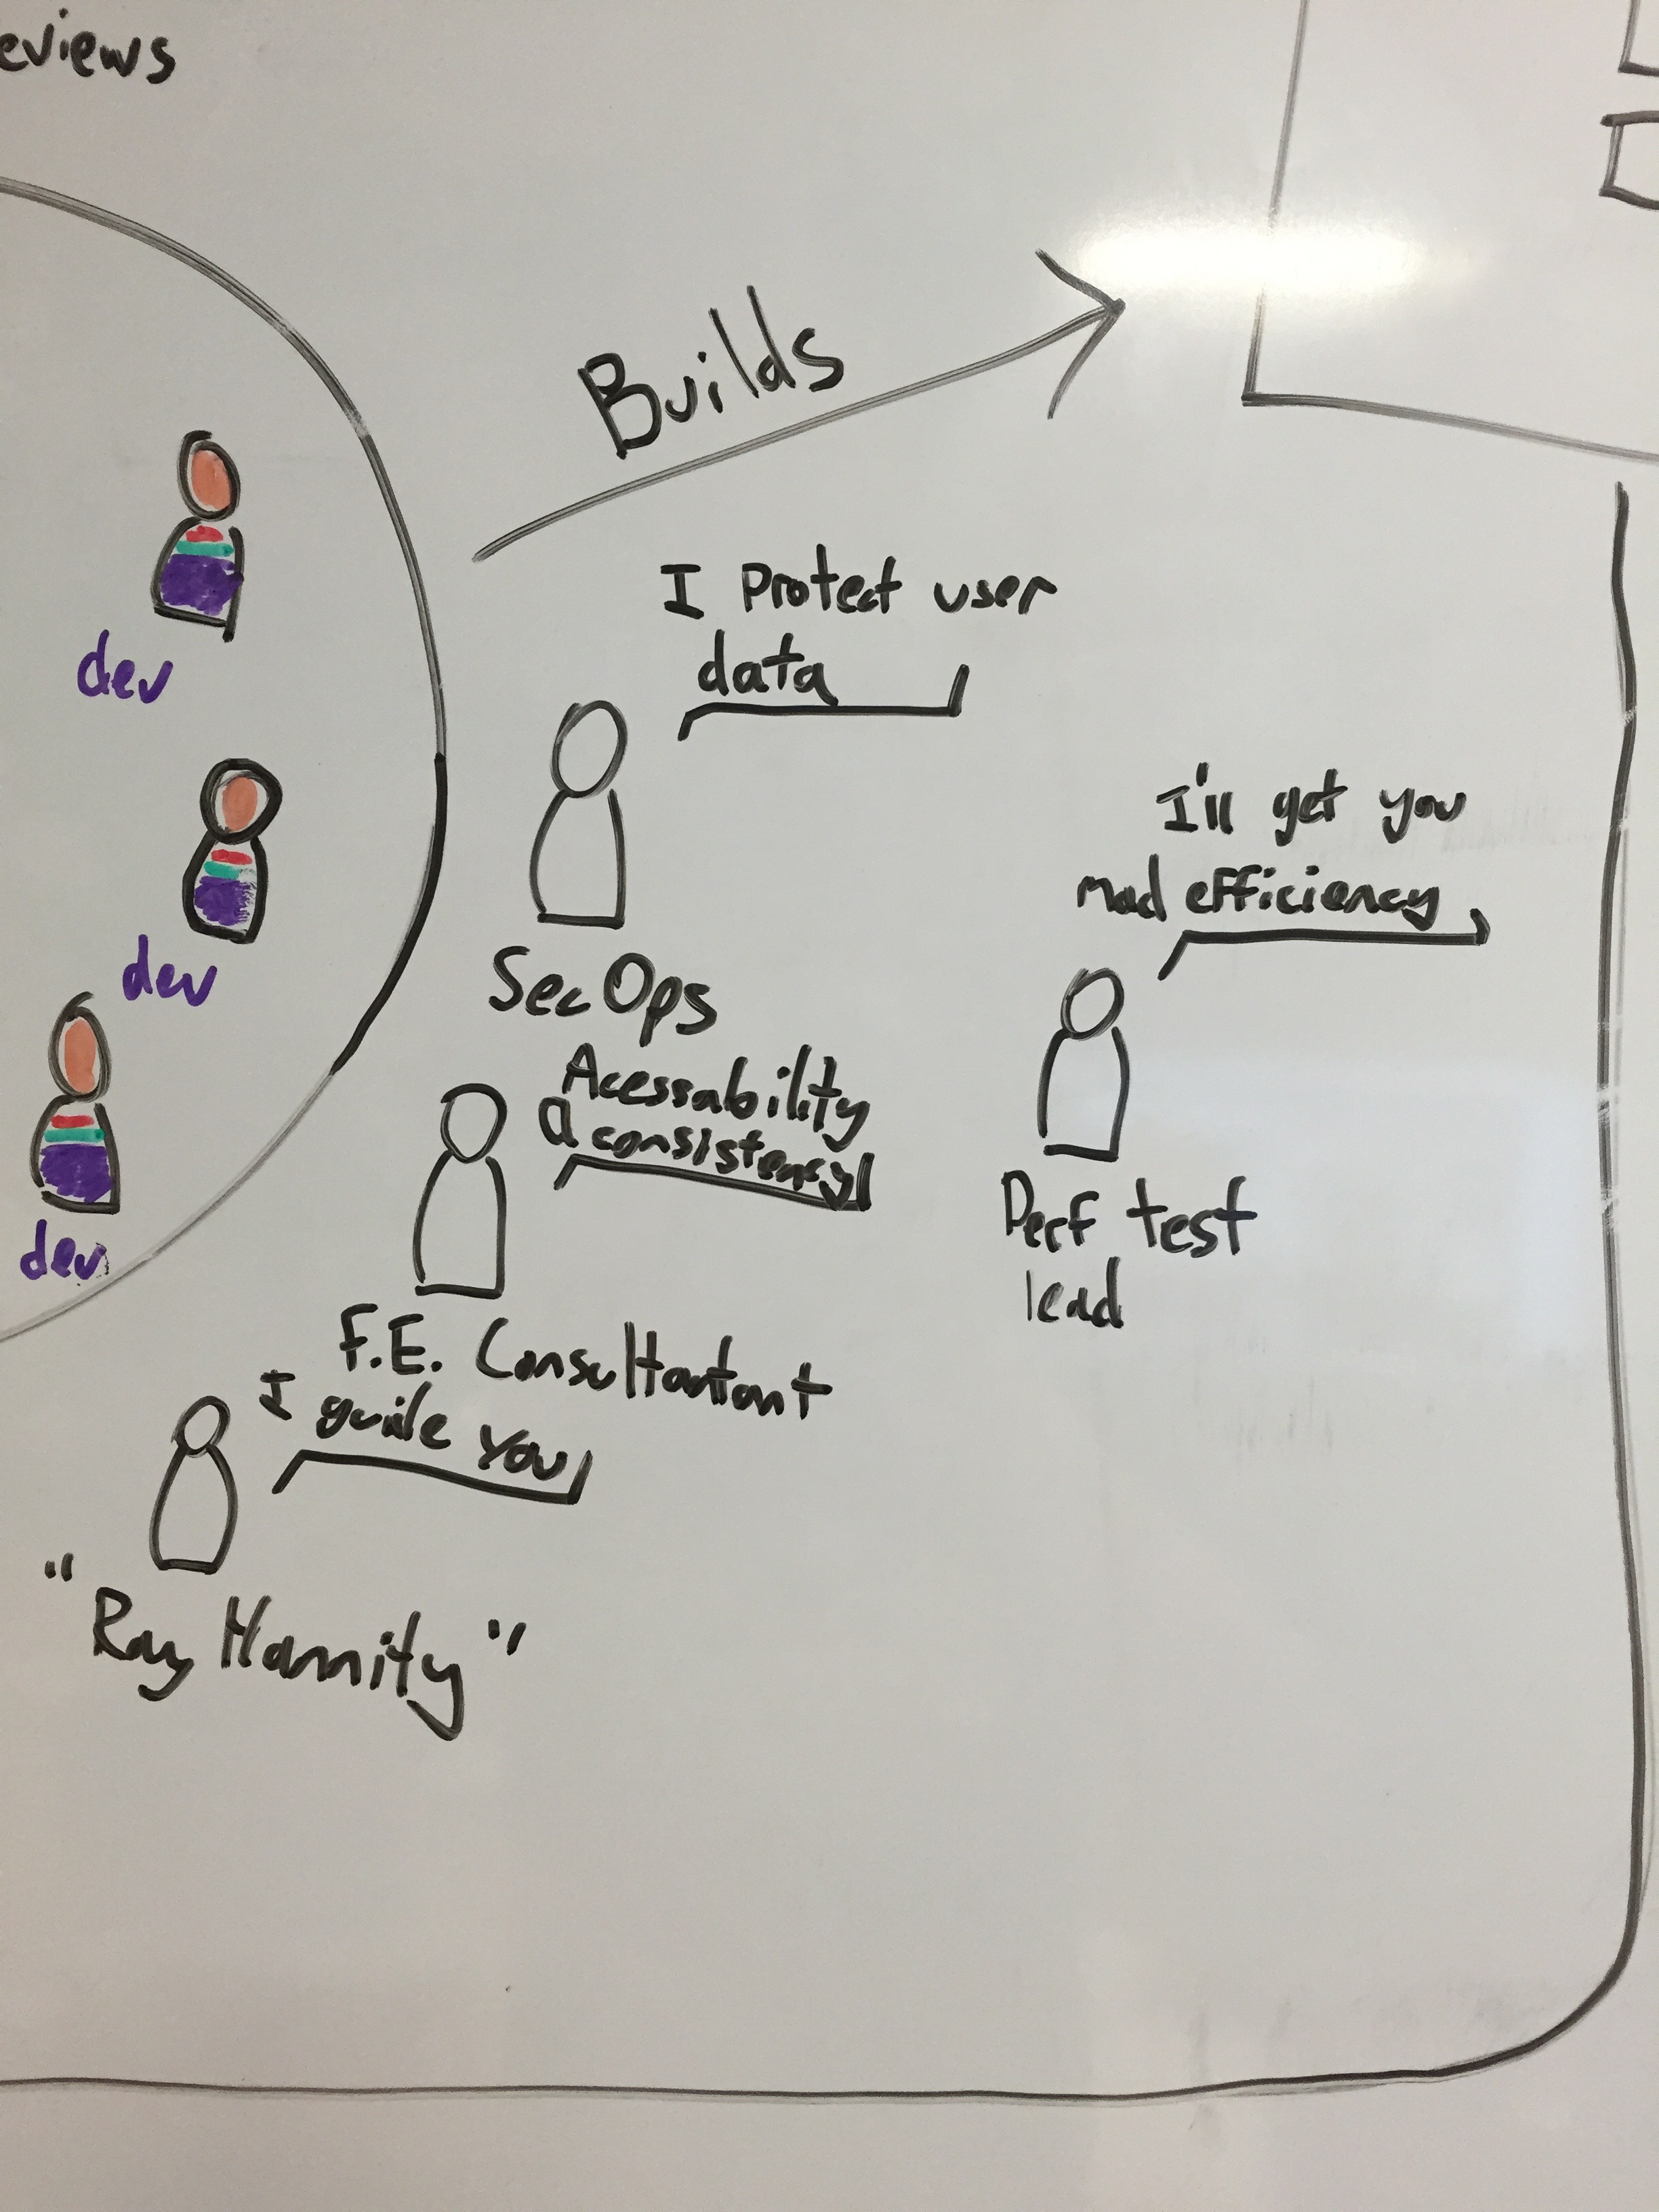 eviews
Builds
dev
I Protect user
data
dev
SecOps
I'll get you
mad efficiency
Perf test
lead
dev
Acessability
a consistency
F.E. Consultantant
I guide you
"Ray Hannity"